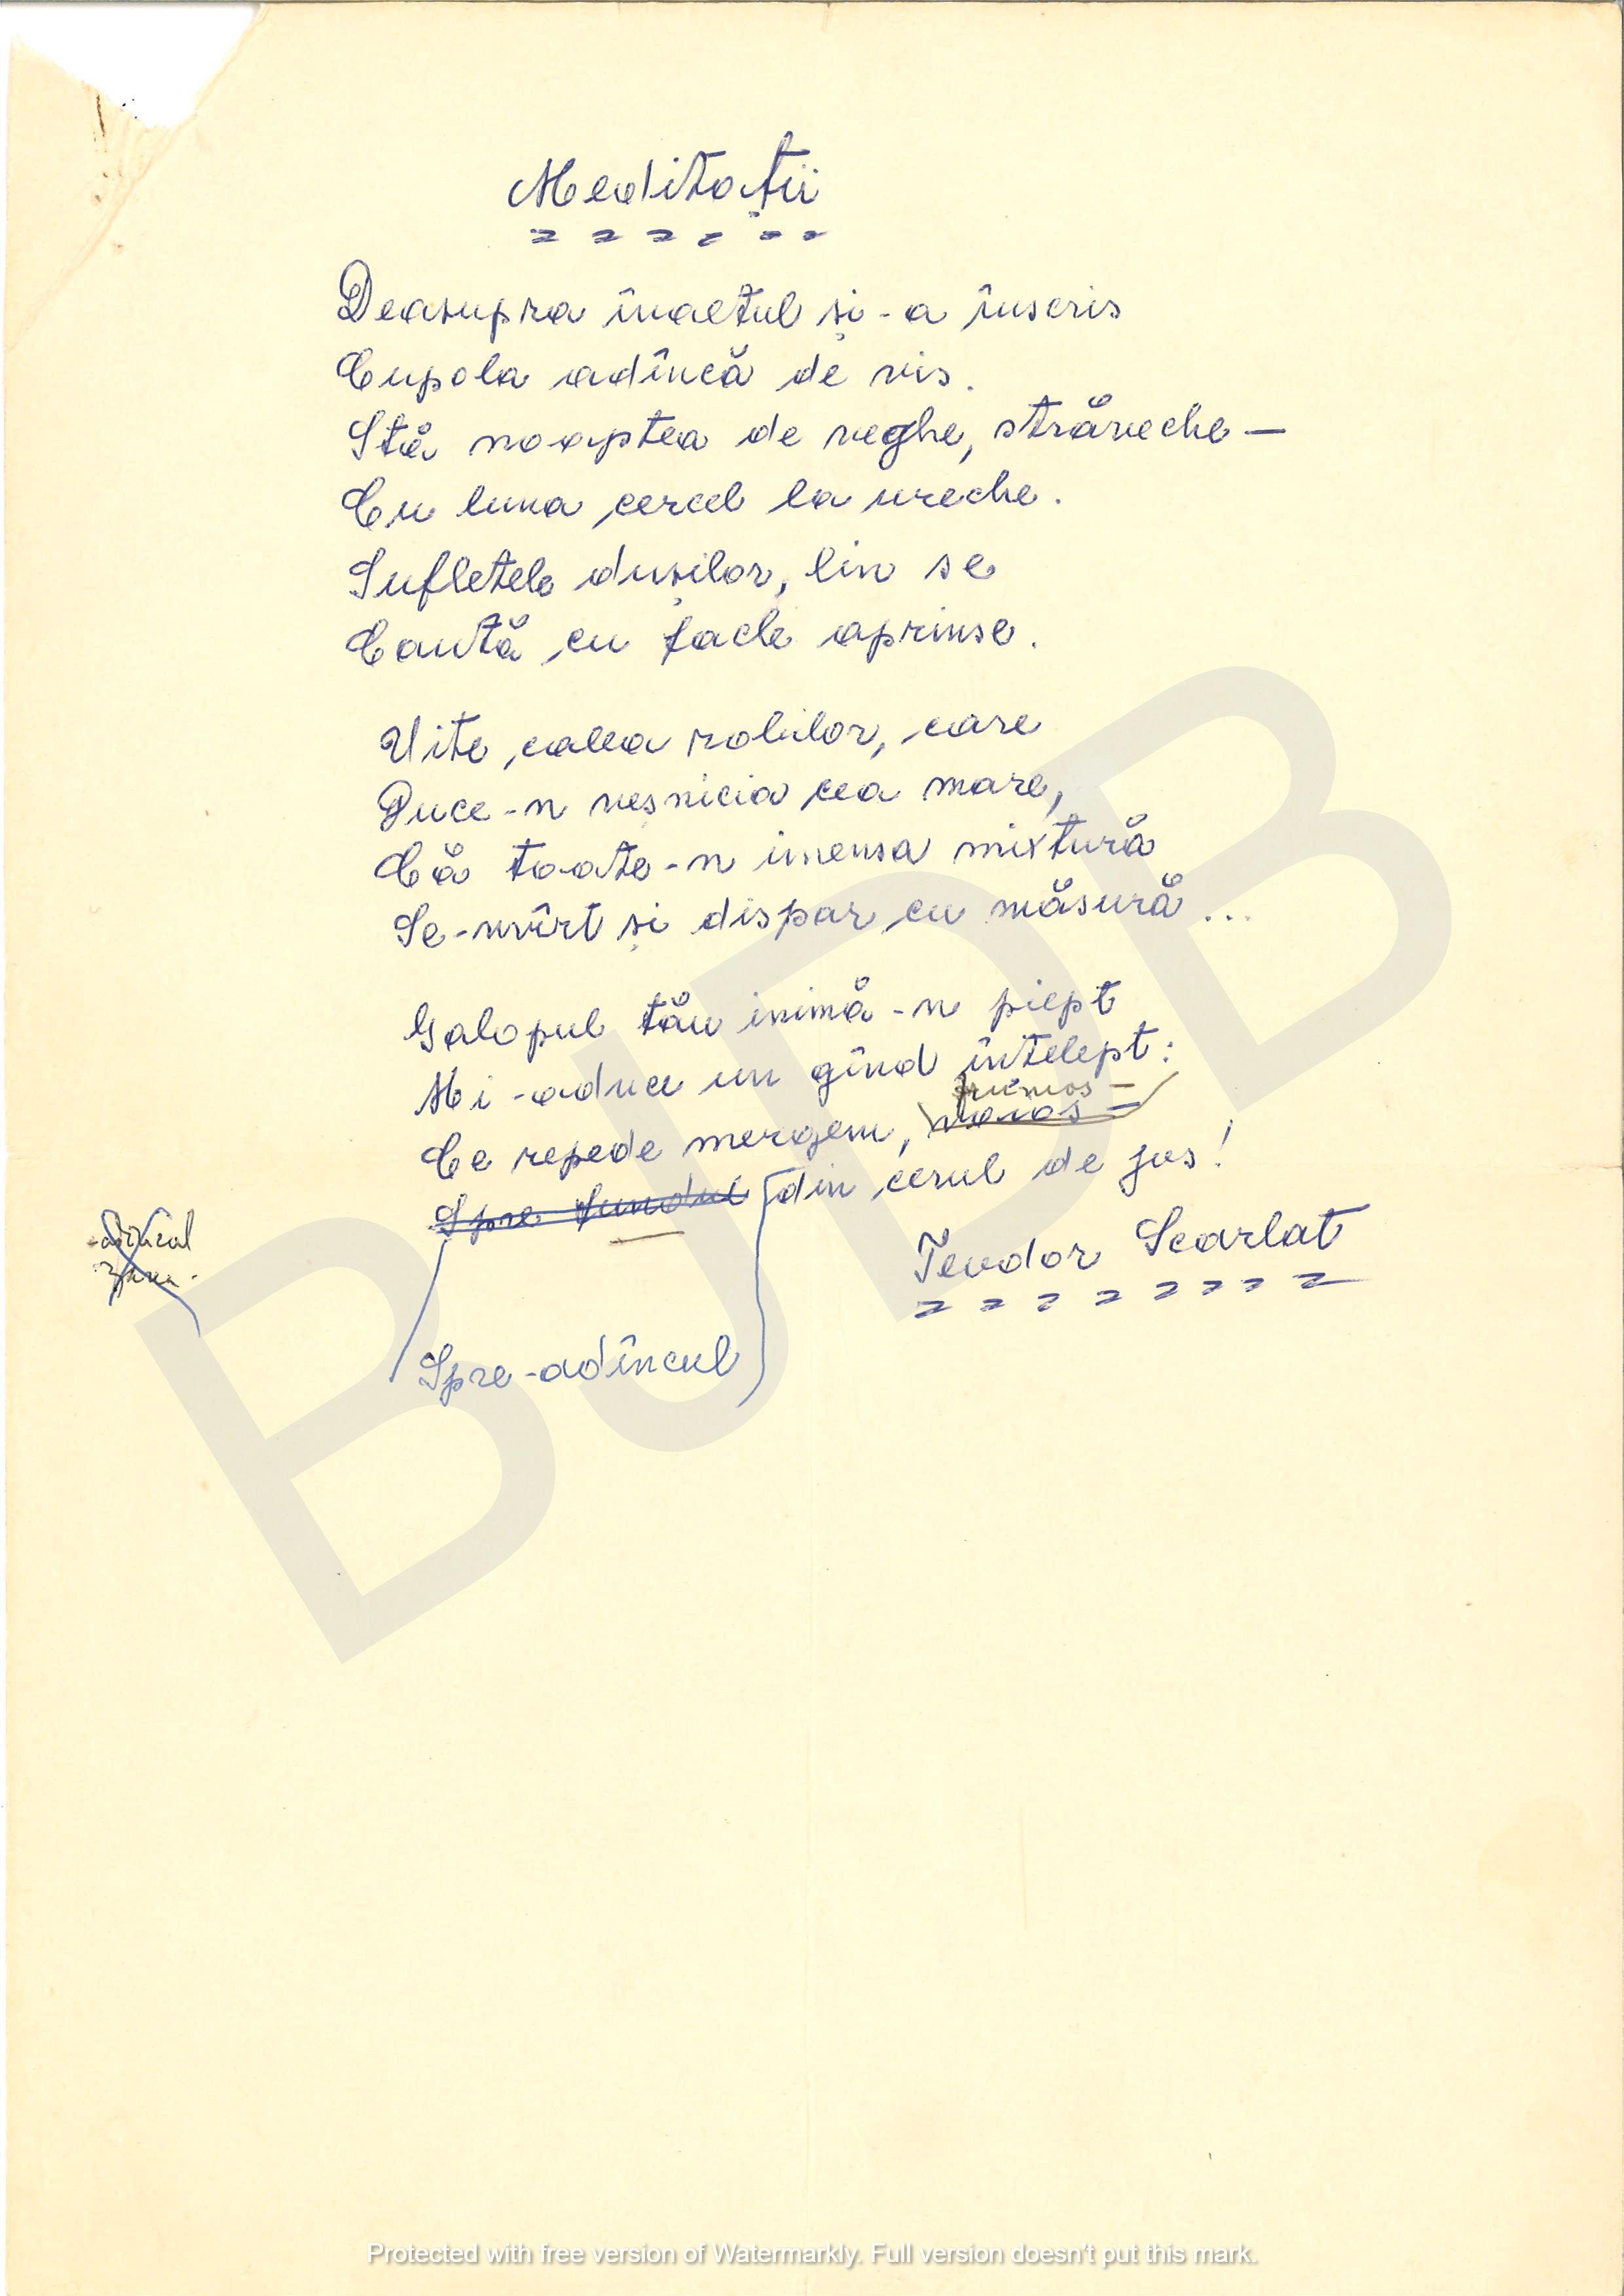 Meditații
Deasupra înaltul și-a înscris
Cupola adîncă de vis.
Stă noaptea de veghe, străveche —
Cu luna cercel la ureche.
Sufletele dușilor, lin se
Caută cu facle aprinse.
Uite calea robilor, care
Duce-n veșnicia cea mare,
Că toate-n imensa mixtură
Se-nvîrt și dispar cu măsură ...
Galopul tău inimă-n piept
Mi-aduce un gînd înțelept:
frumos —
Ce repede mergem, voios —
Spre fundul din cerul de jos!
adîncul
Teodor Scarlat
Spre-adîncul
BJDB
Protected with free version of Watermarkly. Full version doesn't put this mark.